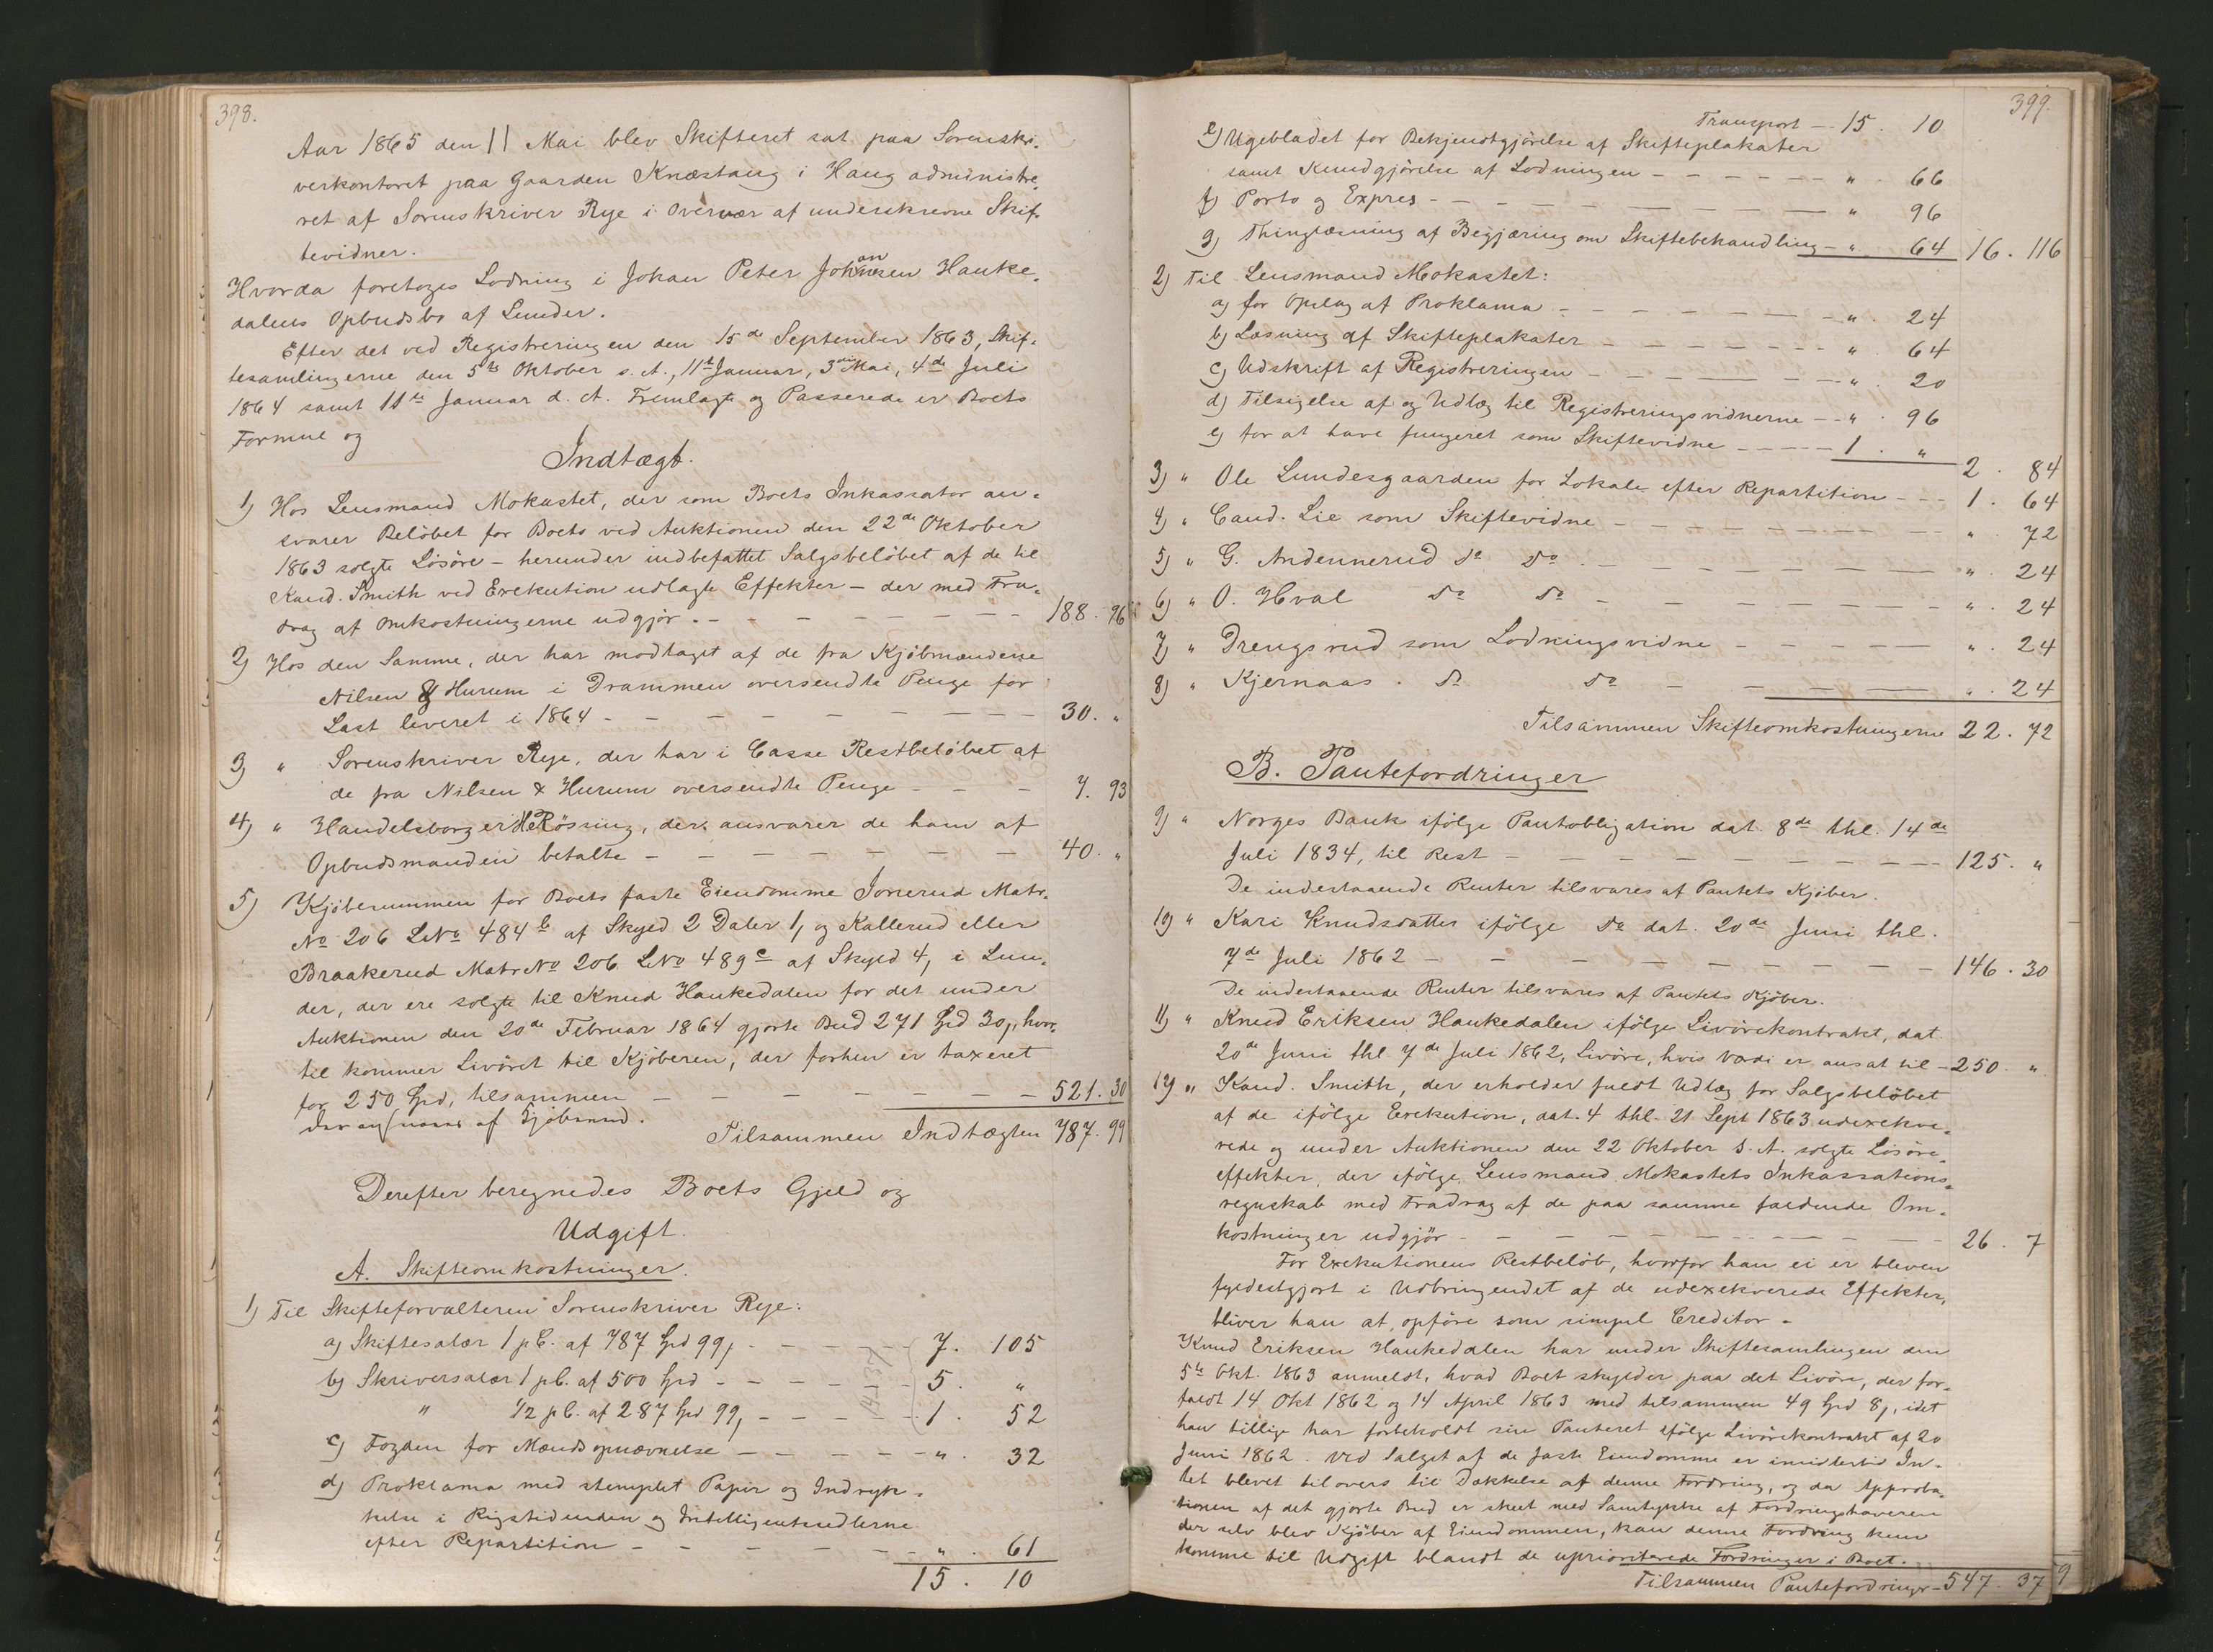 398.
Aar 1865 den 11 Mai blev Skifteret sat paa Sorenskri-
verkontoret paa Gaarden Knæstang i Haug administre-
ret af Sorenskriver Rye i Overvær af underskrevne Skif-
tevidner.
Hvorda foretoges Lodning i Johan Peter Johansen Hauke-
dalens Opbudsbo af Lunder.
Efter det ved Registreringen den 15de September 1863, Skif-
tesamlingerne den 5te Oktober s. A., 11te Januar, 3die Mai, 4de Juli
1864 samt 11te Januar d. A. Fremlagte og Passerede er Boets
Formue og
Indtægt.
1) Hos Lensmand Mokastet, der som Boets Inkassator an-
svarer Beløbet for Boets ved Auktionen den 22de Oktober
1863 solgte Løsøre - herunder indbefattet Salgsbeløbet af de til
Kand. Smith ved Exekution udlagte Effekter - der med Fra-
drag af Omkostningerne udgjør - 188. 96
2) Hos den Samme, der har modtaget af de fra Kjøbmændene
Nilsen & Hurum i Drammen oversendte Penge for
Last leveret i 1864 - 30. "
3) " Sorenskriver Rye, der har i Casse Restbeløbet af
de fra Nilsen & Hurum oversendte Penge - 7. 93
4) " Handelsborger Rösning, der ansvarer de ham af
Opbudsmanden betalte - 40. "
5) Kjøbesummen for Boets faste Eiendomme Jonerud Matr.
No 206 LNo 484b af Skyld 2 Daler 1, og Kallerud eller
Braakerud Matr No 206 LNo 489c af Skyld 4, i Lun-
der, der ere solgte til Knud Haukedalen for det under
Auktionen den 20de Februar 1864 gjorte Bud 271 Spd 30, hvor-
til kommer Livøret til Kjøberen, der forhen er taxeret
for 250 Spd, tilsammen - 521. 30
der af Kjöberen.
Tilsammen Indtægten 787. 99
Derefter beregnedes Boets Gjeld og
Udgift.
A. Skifteomkostninger.
1) Til Skifteforvalteren Sorenskriver Rye:
a) Skiftesalær 1 pC. af 787 Spd 99, - 7. 105
b) Skriversalær 1 pC. af 500 Spd - 5. "
" 1/2 pC. af 287 Spd 99, - 1. 52
c) Fogden for Mændsopnævnelse - ". 32
d) Proklama med stemplet Papir og Indryk-
kelse i Rigstidenden og Intelligentsedlerne
efter Repartition - ". 61
15. 10
399.
Transport - 15. 10
e) Ugebladet for Bekjendtgjørelse af Skifteplakater
samt Kundgjørelse af Lodningen - " 66
f) Porto og Expres - " 96
g) Thinglæsning af Begjæring om Skiftebehandling - " 64 16. 116
2) Til Lensmand Mokastet:
a) for Opslag af Proklama - ". 24
b) Læsning af Skifteplakater - ". 64
c) Udskrift af Registreringen - ". 20
d) Tilsigelse af og Udlæg til Registreringsvidnerne - ". 96
e) for at have fungeret som Skiftevidne - 1. " 2. 84
3) " Ole Lundesgaarden for Lokale efter Repartition - 1. 64
4) " Cand. Lie som Skiftevidne - ". 72
5) " G. Andennerud do do - " 24
6) " O. Hval do do - ". 24
7) " Drengsrud som Lodningsvidne - ". 24
8) " Kjernaas do do - ". 24
Tilsammen Skifteomkostningerne 22. 72
B. Pantefordringer
9) " Norges Bank ifølge Pantobligation dat. 8de thl. 14de
Juli 1834, til Rest - 125. "
De indestaaende Renter tilsvares af Pantets Kjøber.
10) " Kari Knudsdatter ifølge do dat. 20de Juni thl.
7de Juli 1862 - 146. 30
De indestaaende Renter tilsvares af Pantets Kjøber.
11) " Knud Eriksen Haukedalen ifølge Livørekontrakt, dat.
20de Juni thl. 7de Juli 1862, Livøre, hvis Værdi er ansat til - 250. "
12) " Kand. Smith, der erholder fuldt Udlæg for Salgsbeløbet
af de ifølge Exekution, dat. 4 thl. 21 Sept 1863 udexekve-
rede og under Auktionen den 22 Oktober s. A. solgte Løsøre-
effekter, der ifølge Lensmand Mokastets Inkassations-
regnskab med Fradrag af de paa samme faldende Om-
kostninger udgjør - 26. 7
For Exekutionens Restbeløb, hvorfor han ei er bleven
fyldestgjort i Udbringendet af de udexekverede Effekter,
bliver han at opføre som simpel Creditor.
Knud Eriksen Haukedalen har under Skiftesamlingen den
5te Okt. 1863 anmeldt, hvad Boet skylder paa det Livøre, der for-
faldt 14 Okt 1862 og 14 April 1863 med tilsammen 49 Spd 8, idet
han tillige har forbeholdt sin Panteret ifølge Livørekontrakt af 20
Juni 1862. Ved Salget af de faste Eiendomme er imidlertid In-
tet blevet tilovers til Dækkelse af denne Fordring, og da Approba-
tionen af det gjorte Bud er skeet med Samtykke af Fordringshaveren
der selv blev Kjøber af Eiendommen, kan denne Fordring kun
komme til Udgift blandt de uprioriterede Fordringer i Boet.
Tilsammen Pantefordringer - 547. 37